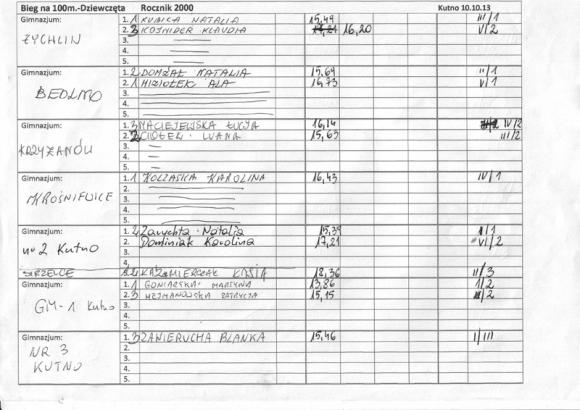 Bieg na 100m.-Dziewczęta Rocznik 2000 Kutno 10.10.13
Gimnazjum: 1. 1 KUBICA NATALIA 15,49 III/1
ŻYCHLIN 2. 3 KOŚMIDER KLAUDIA 16,20 V/2
3.
4.
5.
Gimnazjum: 1. 2 DOMŻAŁ NATALIA 15,69 II/1
BEDLNO 2. 1 MIZIOŁEK ALA 16,73 V/1
3.
4.
5.
Gimnazjum: 1. 3 MACIEJEWSKA ŁUCJA 16,14 IV/2
KRZYŻANÓW 2. CIOŁEK LUANA 15,63 III/2
3.
4.
5.
Gimnazjum: 1. 1 KOLASKA KAROLINA 16,43 IV/1
KROŚNIEWICE 2.
3.
4.
5.
Gimnazjum: 1. 2 Zawychta Natalia 15,39 II/1
nr 2 Kutno 2. Dominiak Karolina 17,21 VI/2
3.
4.
STRZELCE 2 KAŹMIERCZAK KASIA 18,36 II/3
Gimnazjum: 1. 1 GONIARSKA MARTYNA 13,86 I/2
GM-1 Kutno 2. 3 HEJMANOWSKA PATRYCJA 15,15 II/2
3.
4.
5.
Gimnazjum: 1. 3 ZAWIERUCHA BLANKA 15,46 I/III
NR 3 2.
KUTNO 3.
4.
5.